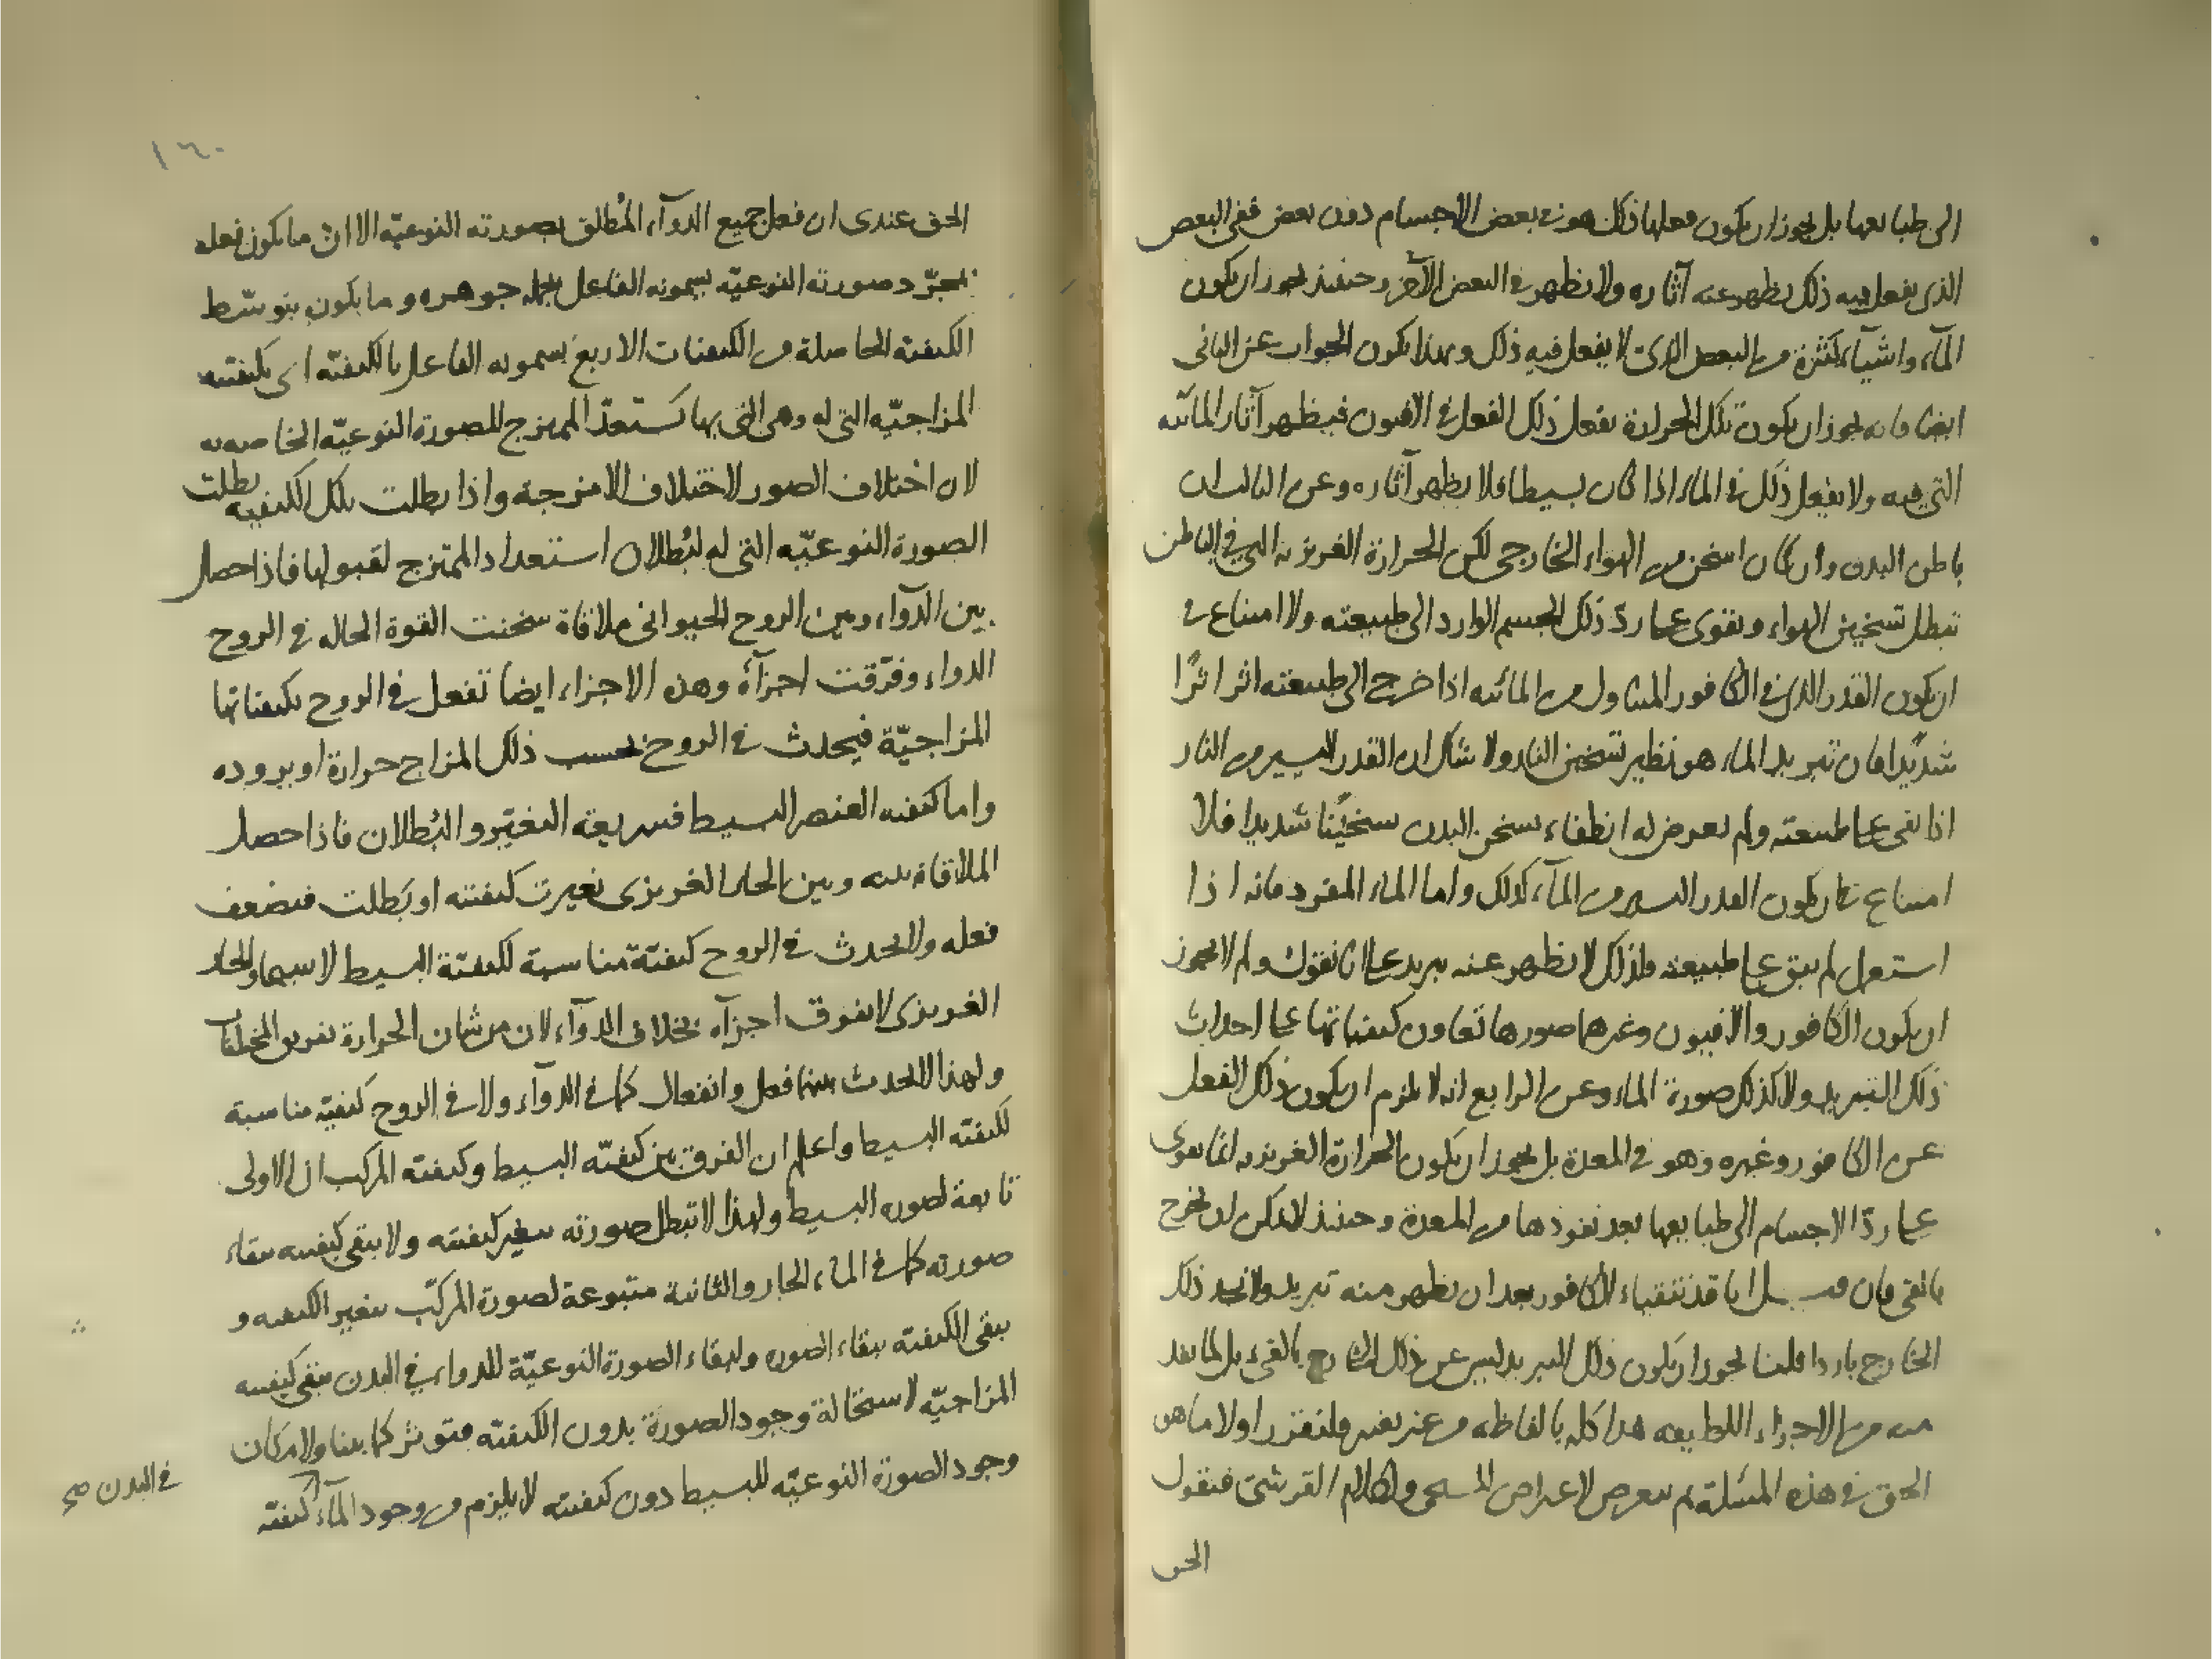 الى طبايعها بل يجوز ان يكون فعلها ذلك هو في بعض الاجسام دون بعض ففى البعض
الذى يفعل فيه ذلك يظهر عنه آثاره ولا يظهر فى البعض الآخر وحينئذ يجوز ان يكون
المآء واشيآء كثيرة من البعض الذى لا يفعل فيه ذلك وبهذا يكون الجواب عن الثانى
ايضا فانه يجوز ان يكون تلك الحرارة يفعل ذلك الفعل فى الافيون فيظهر آثار المائيّه
التى فيه ولا يفعل ذلك فى الماء اذا كان بسيطا فلا يظهر آثاره وعن الثالث ان
باطن البدن وان كان اسخن من الهواء الخارجى لكن الحرارة الغريزية التى فى الباطن
تبطل تسخين الهواء وتقوى على ردّ ذلك الجسم الوارد الى طبيعته ولا امتناع فى
ان يكون القدر الذى فى الكافور المتناول من المائيه اذا خرج الى طبيعته اثر اثرًا
شديدا فان تبريد الماء هو نظير تسخين النار ولا شك ان القدر اليسير من النار
اذا بقى على طبيعته ولم يعرض له انطفاء يسخن البدن تسخينًا شديدا فلا
امتناع فى ان يكون القدر اليسير من المآء كذلك واما الماء المفرد فانه اذا
استعمل لم يبق على طبيعته فلذلك لا يظهر عنه تبريد على انا نقول ولم لا يجوز
ان يكون الكافور والافيون وغيرهما صورها تعاون كيفياتها على احداث
ذلك التبريد ولا كذلك صورة الماء وعن الرابع انه لا يلزم ان يكون ذلك الفعل
عن الكافور وغيره وهو فى المعدة بل يجوز ان يكون الحرارة الغريزية انما يقوى
على ردّ الاجسام الى طبايعها بعد نفوذها من المعدة وحينئذ لا يمكن ان يخرج
بالقى فان قيل انا قد نتقياء الكافور بعد ان يظهر منه تبريد ولا نجد ذلك
الخارج باردا قلنا يجوز ان يكون ذلك التبريد ليس عن ذلك الخارج بالقىء بل لما نفذ
منه من الاجزاء اللطيفه هذا كله بالفاظه من غير تغير فلنقرر اولا ما هو
الحق فى هذه المسئلة ثم نتعرض لاعتراض المسيحى وكلام القرشى فنقول
الحق
١٦٠
الحق عندى ان فعل جميع الدوآء المُطلق بصورته النوعيّه الا انّ ما يكون فعله
بمجرّد صورته النوعيّه يسمونه الفاعل بجملة جوهره وما يكون بتوسّط
الكيفيّه الحاصلة من الكيفيات الاربع يسمونه الفاعل بالكيفيّه اى بكيفيته
المزاجيّه التى له وهى التى بها يستعدّ الممتزج للصورة النوعيّه الخاصه به
لان اختلاف الصور لاختلاف الامزجة واذا بطلت تلك الكيفية بطلت
الصورة النوعيّه التى له لبُطلان استعداد الممتزج لقبولها فاذا حصل
بين الدوآء وبين الروح الحيوانى ملاقاة سخنت القوة الحاله فى الروح
الدواء وفرّقت اجزآءه وهذه الاجزاء ايضا تفعل فى الروح بكيفياتها
المزاجيّة فيحدث فى الروح بحسب ذلك المزاج حرارة او بروده
واما كيفيه العنصر البسيط فسريعة التغيّر والبُطلان فاذا حصل
الملاقاة بينه وبين الحار الغريزى تغيرت كيفيته او بَطلت فيضعف
فعله ولا يحدث فى الروح كيفيّة مناسبة لكيفيّة البسيط لا سيما والحار
الغريزى لا يفرق اجزآءه بخلاف الدوآء لان من شان الحرارة تفريق المختلفات
ولهذا لا يحدث بينهما فعل وانفعال كما فى الدوآء ولا فى الروح كيفيّه مناسبة
لكيفيّه البسيط واعلم ان الفرق بين كيفيّه البسيط وكيفيّه المركب ان الاولى
تابعة لصوره البسيط ولهذا لا تبطل صورته بتغير كيفيته ولا يبقى كيفيته ببقاء
صورته كما فى الماء الحار والثانية متبوعة لصورة المركّب بتغير الكيفيه و
يبقى الكيفيّه ببقاء الصوره ولبقاء الصورة النوعيّة للدواء فى البدن يبقى كيفيته
المزاجيّه لاستحالة وجود الصورة بدون الكيفيّه فتوثر كما بينا ولامكان
وجود الصورة النوعيّه للبسيط دون كيفيته لا يلزم من وجود المآء كيفيّه
فى البدن صح